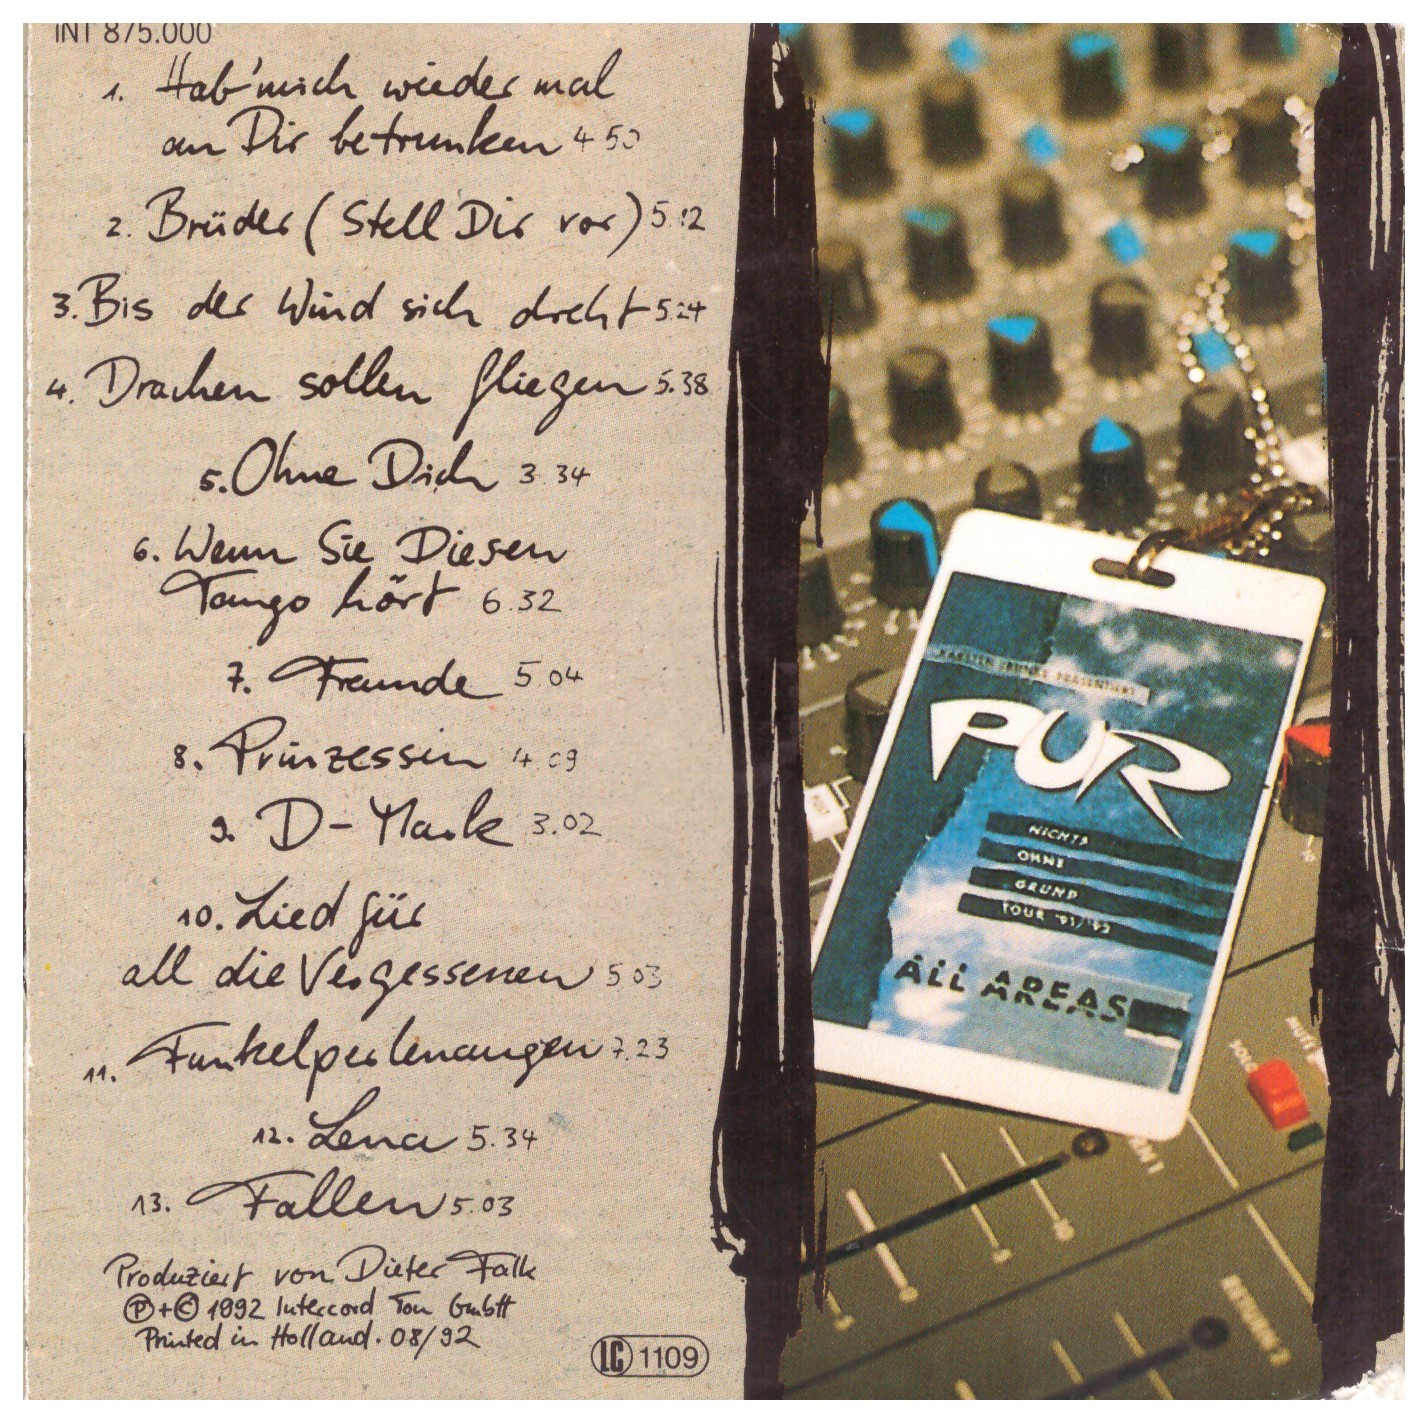 INT 875.000
1. Hab' mich wieder mal
an Dir betrunken 4 50
2. Brüder (Stell Dir vor) 5.12
3. Bis der Wind sich dreht 5.24
4. Drachen sollen fliegen 5.38
5. Ohne Dich 3.34
6. Wenn Sie Diesen
Tango hört 6.32
7. Freunde 5.04
8. Prinzessin 4.09
9. D-Mark 3.02
10. Lied für
all die Vergessenen 5.03
11. Funkelperlenaugen 7.23
12. Lena 5.34
13. Fallen 5.03
Produziert von Dieter Falk
℗+© 1992 Intercord Ton GmbH
Printed in Holland. 08/92
LC 1109
PRÄSENTIERT
PUR
NICHTS
OHNE
GRUND
TOUR '91/'92
ALL AREAS
SOLO
RETURN 2